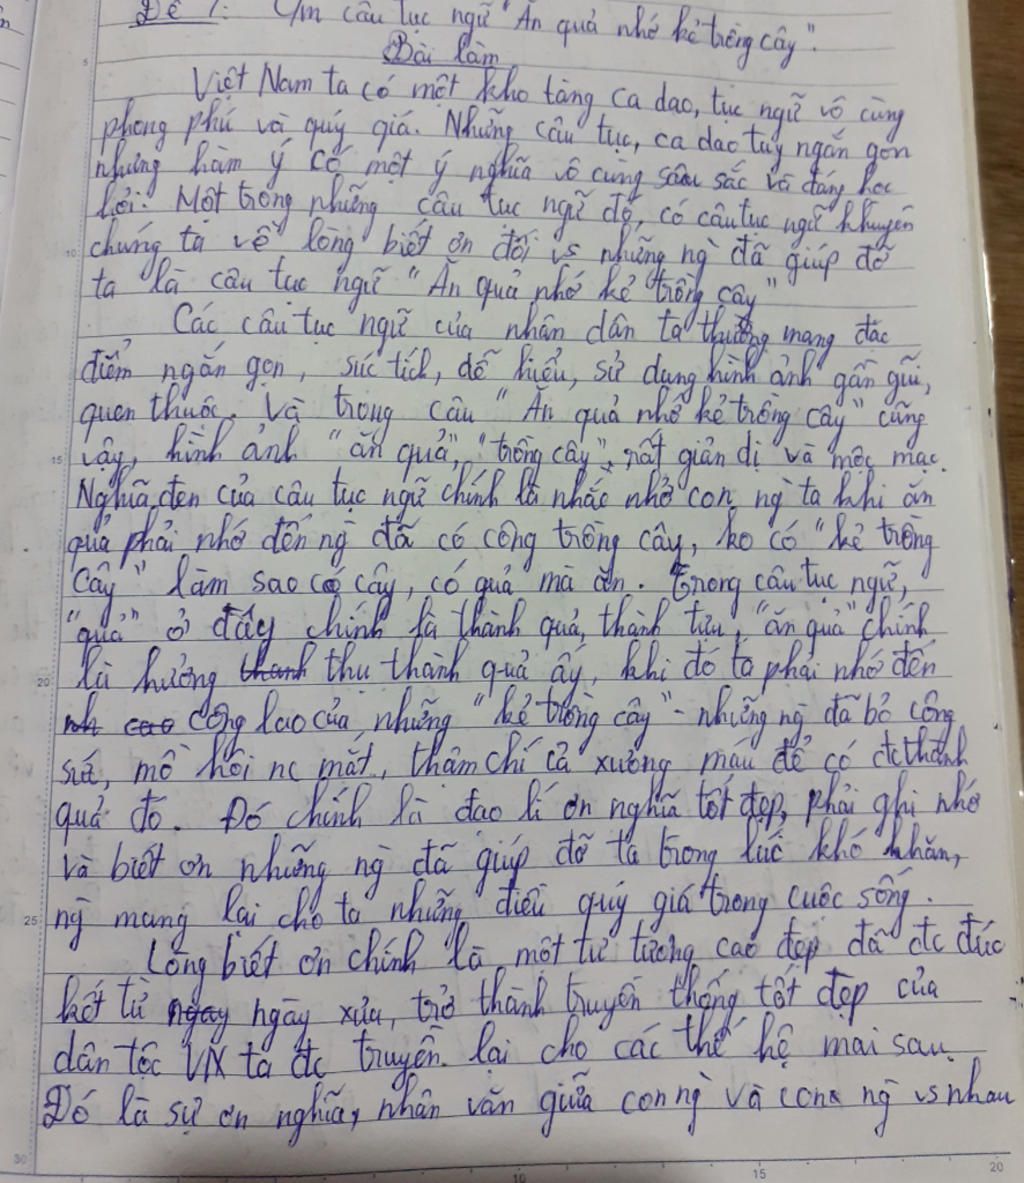 Đề 1: C/m câu tục ngữ "Ăn quả nhớ kẻ trồng cây".
Bài làm
Việt Nam ta có một kho tàng ca dao, tục ngữ vô cùng
phong phú và quý giá. Những câu tục, ca dao tuy ngắn gọn
nhưng hàm ý có một ý nghĩa vô cùng sâu sắc và đáng học
hỏi. Một trong những câu tục ngữ đó, có câu tục ngữ khuyên
chúng ta về lòng biết ơn đối vs những ng` đã giúp đỡ
ta là câu tục ngữ "Ăn quả nhớ kẻ trồng cây"
Các câu tục ngữ của nhân dân ta thường mang đặc
điểm ngắn gọn, súc tích, dễ hiểu, sử dụng hình ảnh gần gũi,
quen thuộc. Và trong câu "Ăn quả nhớ kẻ trồng cây" cũng
vậy, hình ảnh "ăn quả", "trồng cây", rất giản dị và mộc mạc.
Nghĩa đen của câu tục ngữ chính là nhắc nhở con ng` ta khi ăn
quả phải nhớ đến ng` đã có công trồng cây, ko có "kẻ trồng
cây" làm sao có cây, có quả mà ăn. Trong câu tục ngữ,
"quả" ở đây chính là thành quả, thành tựu, "ăn quả" chính
là hưởng thanh thụ thành quả ấy, khi đó ta phải nhớ đến
nh cao công lao của những "kẻ trồng cây" - những ng` đã bỏ công
sức, mồ hôi nc mắt, thậm chí cả xương máu để có đc thành
quả đó. Đó chính là đạo lí ơn nghĩa tốt đẹp, phải ghi nhớ
và biết ơn những ng` đã giúp đỡ ta trong lúc khó khăn,
ng` mang lại cho ta những điều quý giá trong cuộc sống.
Lòng biết ơn chính là một tư tưởng cao đẹp đã đc đúc
kết từ ngay ngày xưa, trở thành truyền thống tốt đẹp của
dân tộc VN ta đc truyền lại cho các thế hệ mai sau.
Đó là sự ơn nghĩa, nhân văn giữa con ng` và con ng` vs nhau